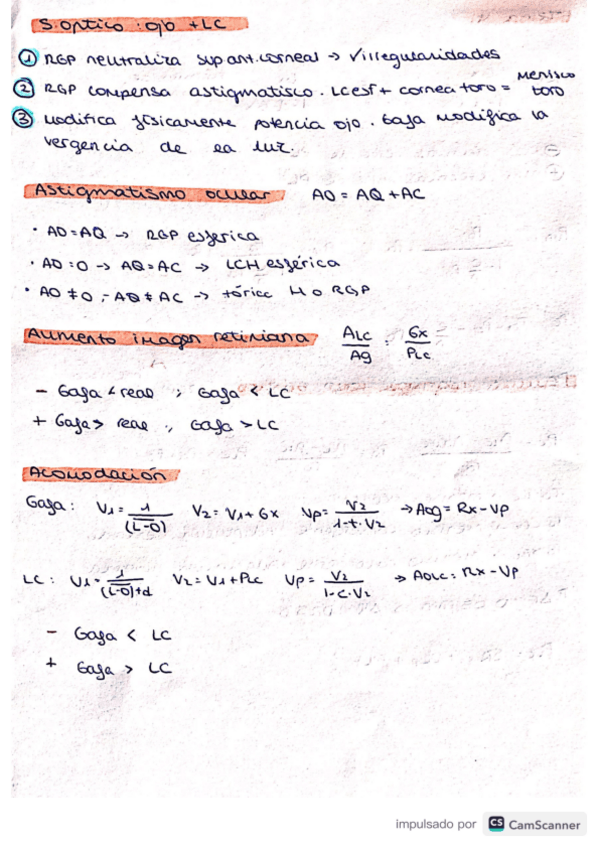 S.Optico : ojo + LC
① RGP neutraliza sup.ant.corneal → √irregularidades
② RGP compensa astigmatisco. LCesf + cornea toro = menisco toro
③ Modifica físicamente potencia ojo. Gafa modifica la
vergencia de la luz.
Astigmatismo ocular AO = AQ + AC
· AO=AQ → RGP esferica
· AO=0 → AQ=AC → LCH esférica
· AO≠0 ; AQ≠AC → tórica H o RGP
Aumento imagen retiniana ALC/Ag : Gx/PLC
- Gafa < real ; Gafa < LC
+ Gafa > real ; Gafa > LC
Acomodación
Gafa: V1 = 1/(L-O) V2 = V1 + Gx Vp = V2/1-t·V2 → Aog = Rx - Vp
LC: V1 = 1/(L-O)+d V2 = V1 + PLC Vp = V2/1-C·V2 → AOLC = Rx - Vp
- Gafa < LC
+ Gafa > LC
impulsado por CS CamScanner